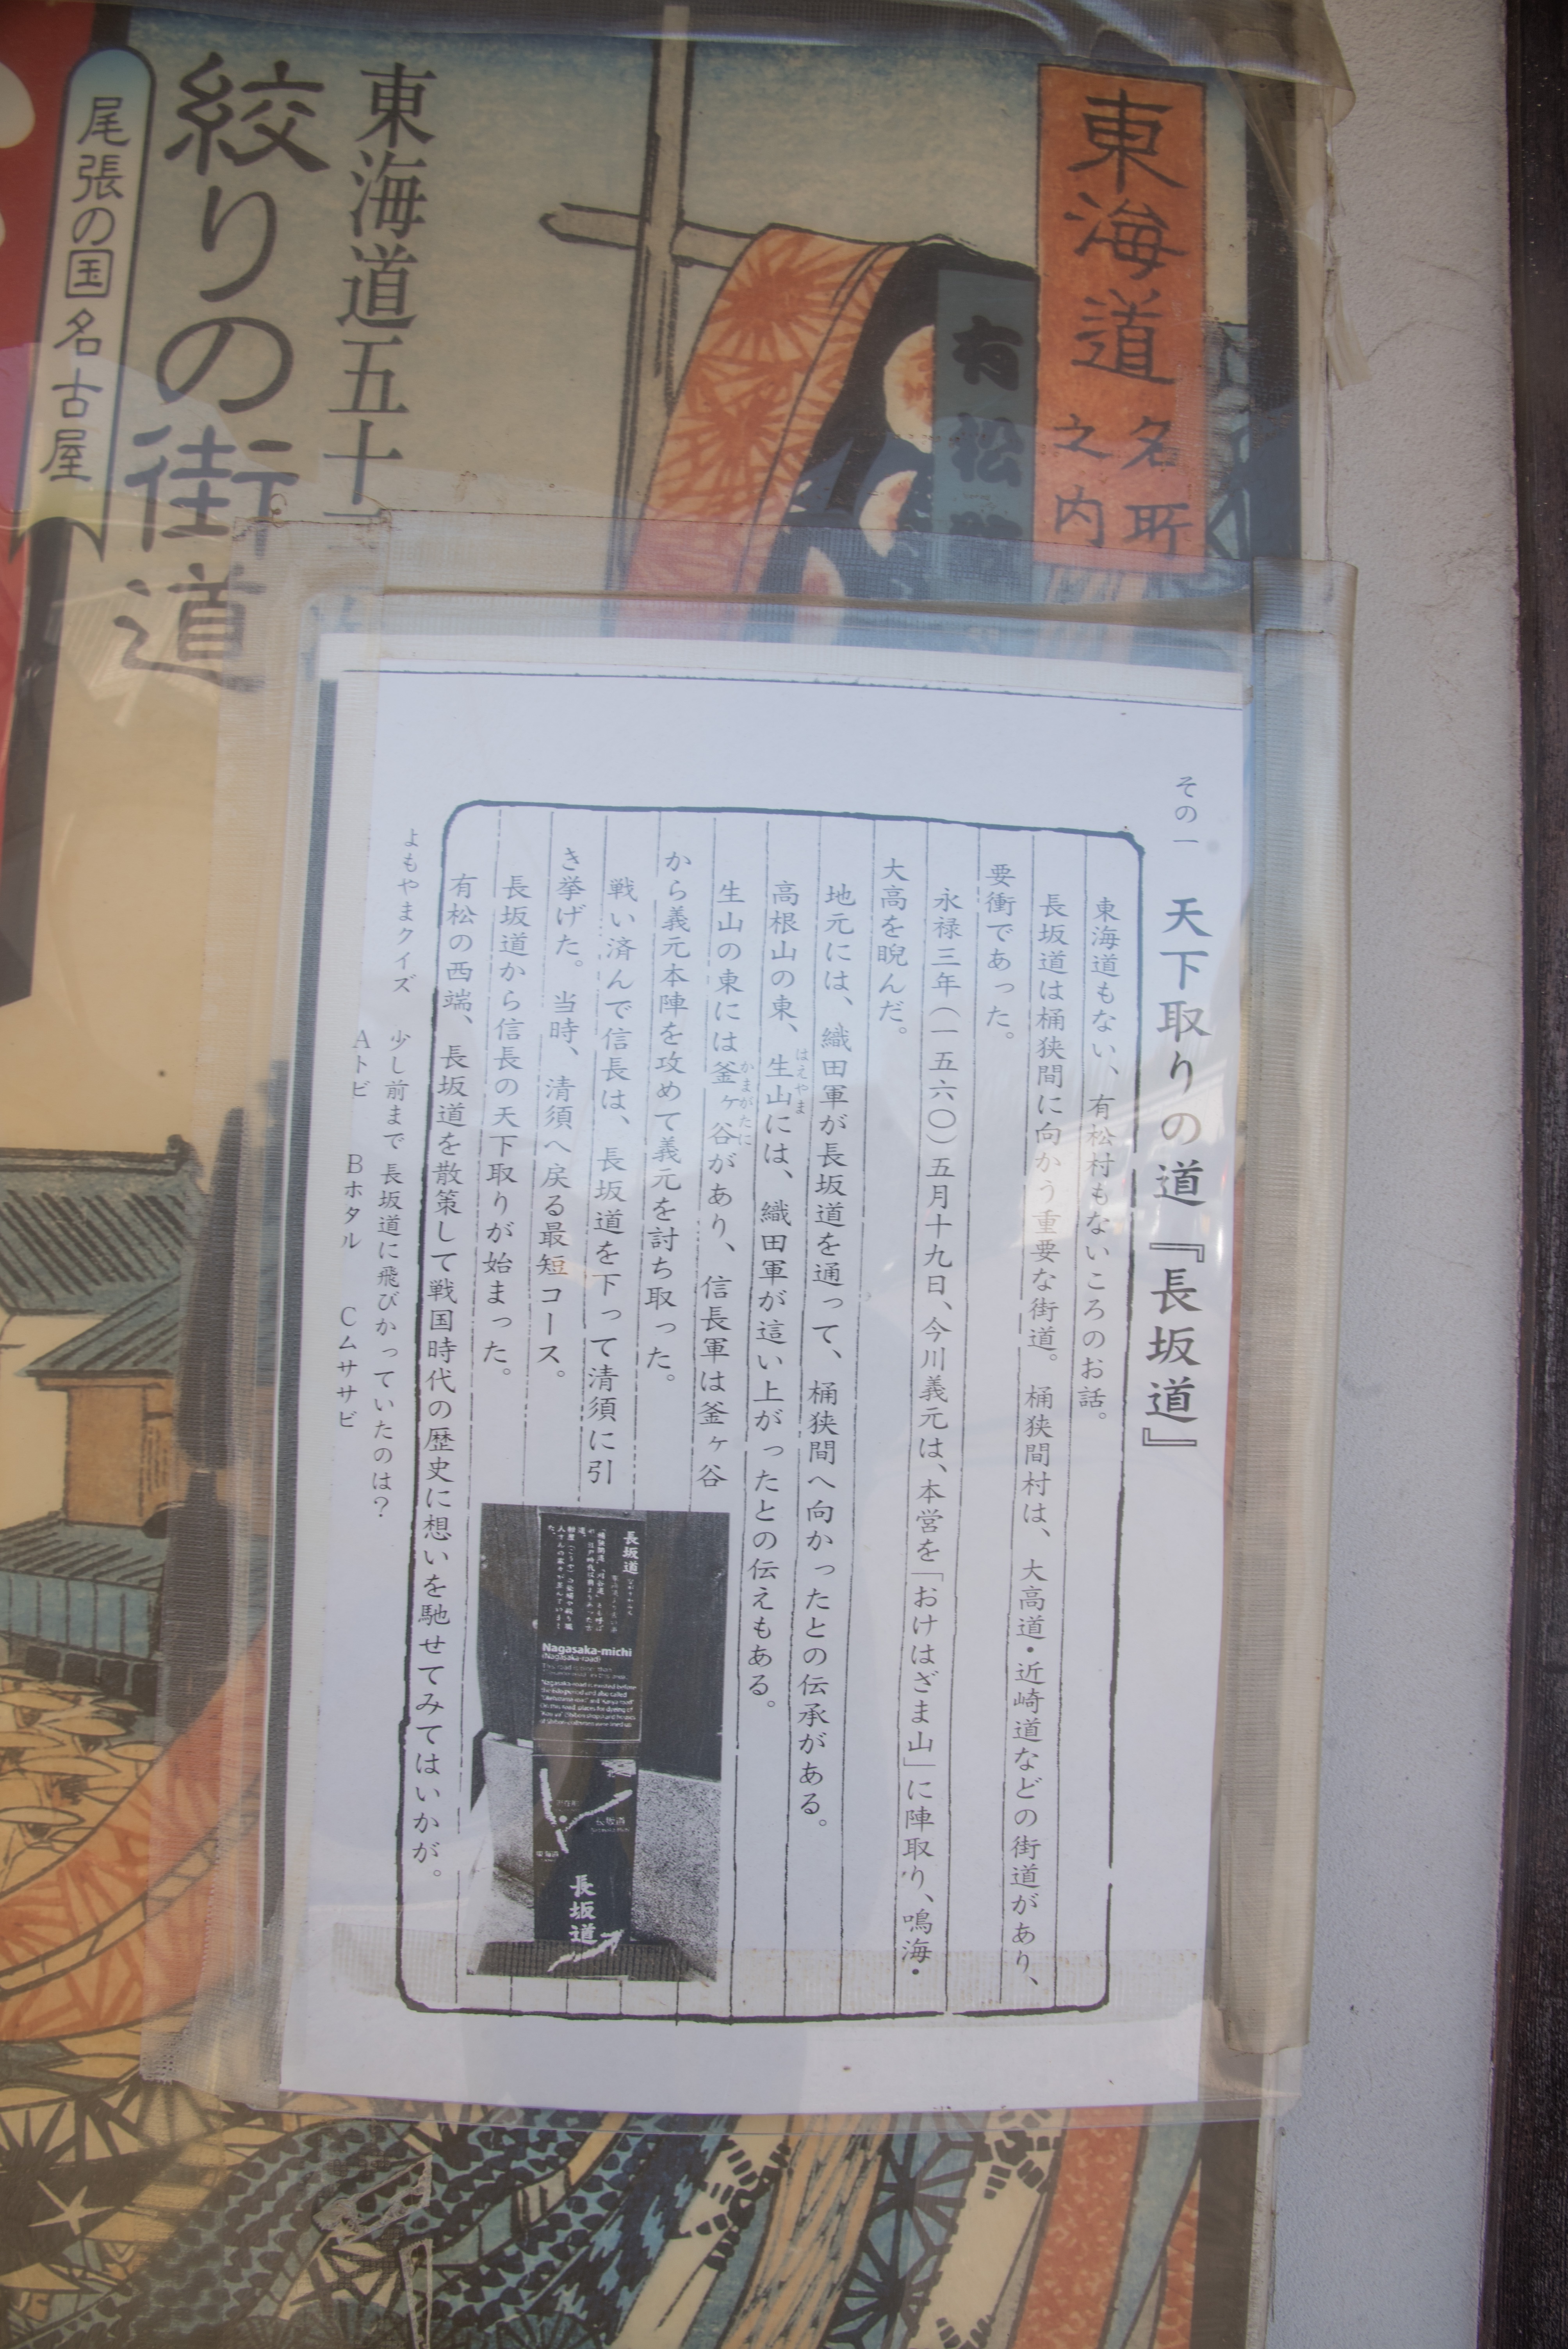 東海道
名所
之内
有松
東海道五十三
絞りの街道
尾張の国名古屋
その一 天下取りの道『長坂道』
東海道もない、有松村もないころのお話。
長坂道は桶狭間に向かう重要な街道。桶狭間村は、大高道・近崎道などの街道があり、
要衝であった。
永禄三年(一五六〇)五月十九日、今川義元は、本営を「おけはざま山」に陣取り、鳴海・
大高を睨んだ。
地元には、織田軍が長坂道を通って、桶狭間へ向かったとの伝承がある。
高根山の東、生山には、織田軍が這い上がったとの伝えもある。
はえやま
生山の東には釜ヶ谷があり、信長軍は釜ヶ谷
かまがたに
から義元本陣を攻めて義元を討ち取った。
戦い済んで信長は、長坂道を下って清須に引
き挙げた。当時、清須へ戻る最短コース。
長坂道から信長の天下取りが始まった。
有松の西端、長坂道を散策して戦国時代の歴史に想いを馳せてみてはいかが。
長坂道
Nagasaka-michi
(Nagasaka-road)
長坂道
長坂道
よもやまクイズ 少し前まで長坂道に飛びかっていたのは?
Aトビ Bホタル Cムササビ